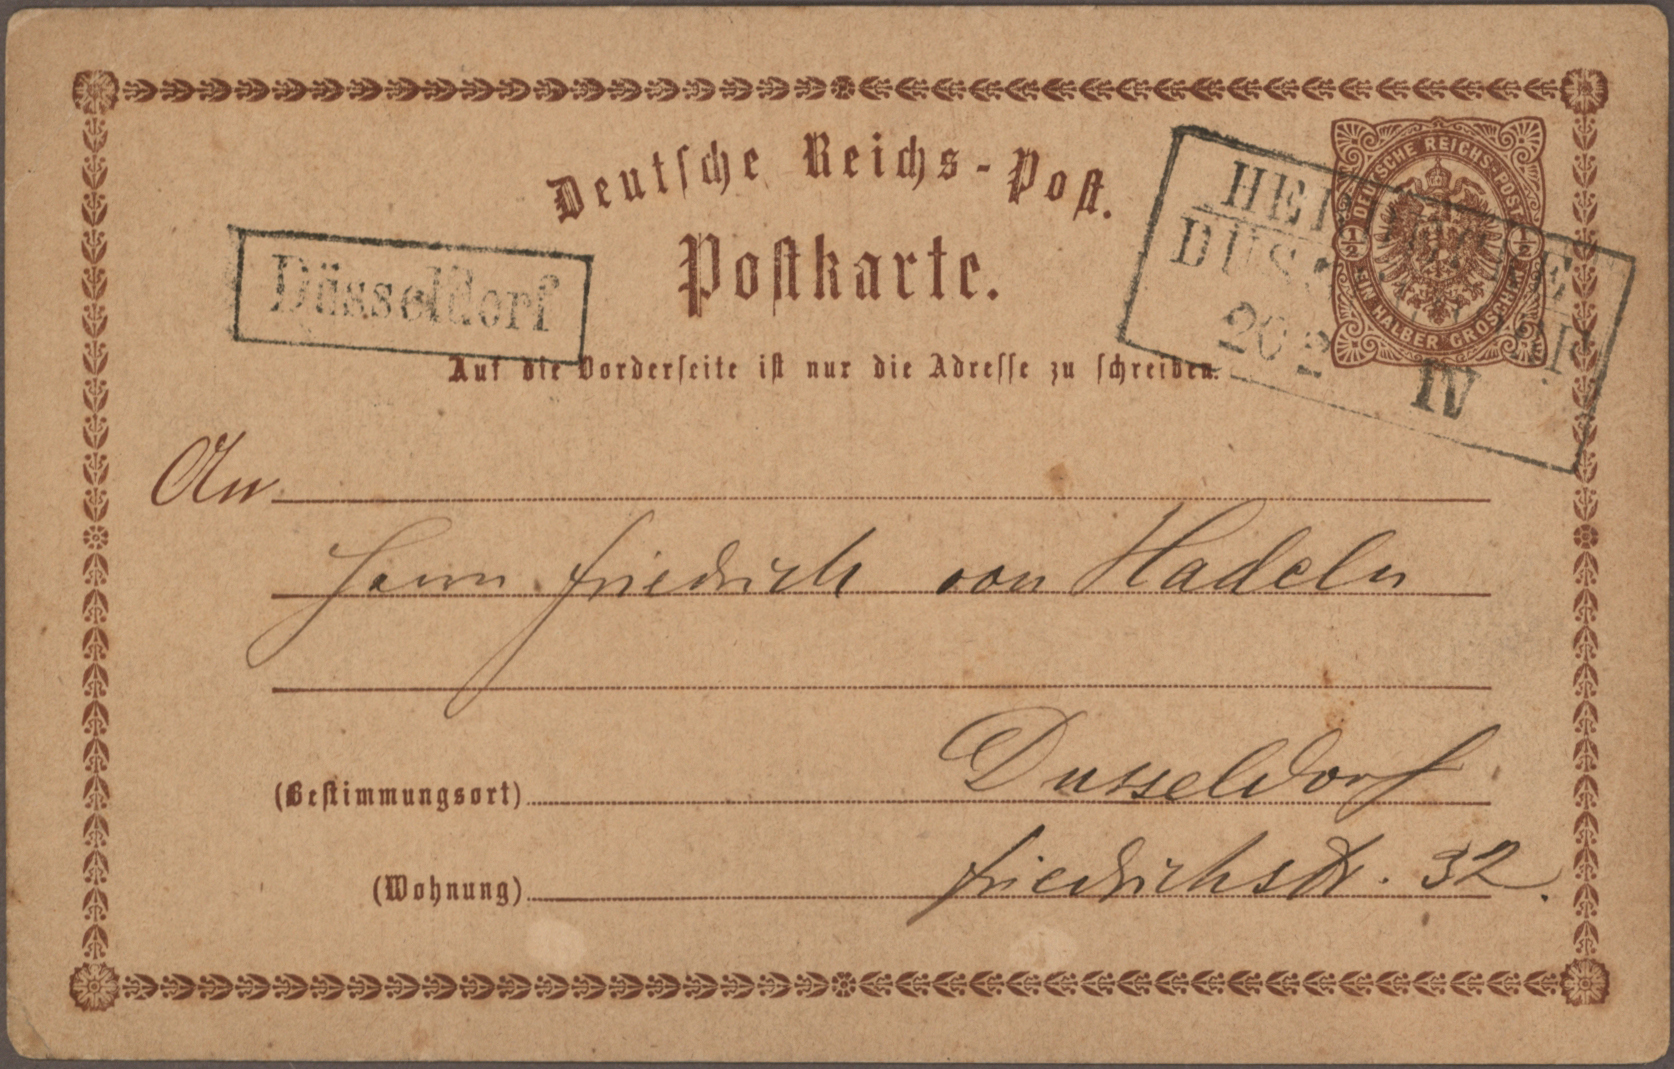 Deutsche Reichs-Post.
Postkarte.
DEUTSCHE REICHS-POST
1/2 1/2
EIN HALBER GROSCHEN
Düsseldorf
20 2
IV
Auf die Vorderseite ist nur die Adresse zu schreiben.
An
Herrn Friedrich von Hadeln
(Bestimmungsort) Dusseldorf
(Wohnung) Friedrichstr. 32.